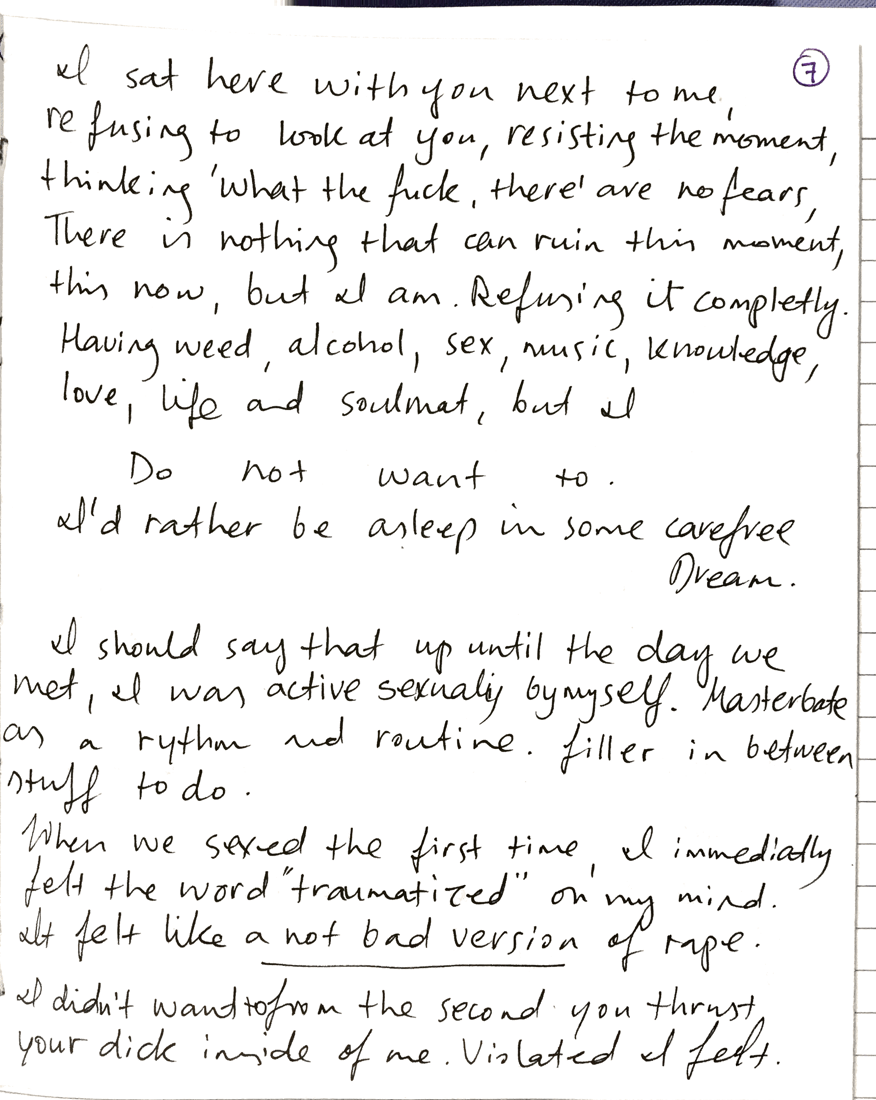 7
I sat here with you next to me,
refusing to look at you, resisting the moment,
thinking 'what the fuck, there' are no fears,
There is nothing that can ruin this moment,
this now, but I am. Refusing it completly.
Having weed, alcohol, sex, music, knowledge,
love, life and soulmat, but I
Do not want to.
I'd rather be asleep in some carefree
Dream.
I should say that up until the day we
met, I was active sexualy by myself. Masterbate
as a rythm and routine. filler in between
stuff to do.
When we sexed the first time, I immediatly
felt the word "traumatized" on my mind.
It felt like a not bad version of rape.
I didn't want to from the second you thrust
your dick inside of me. Violated I felt.